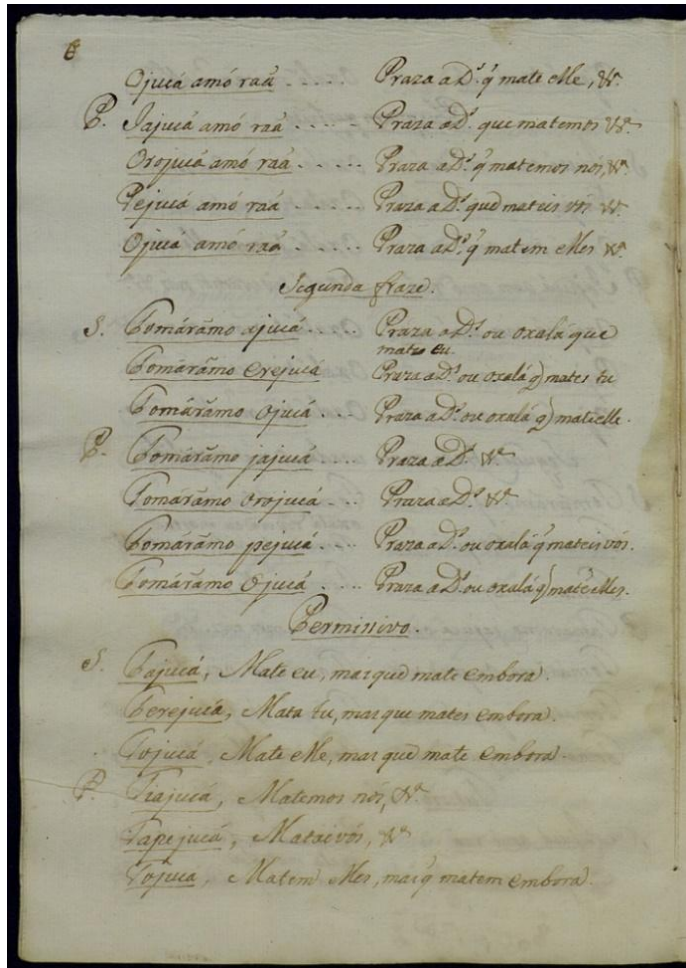 6
Ojucá amó raá ..... Praza a D.s q̃ mate elle, &.
P. Jajucá amó raá ..... Praza a D.s que matemos &.a
Orojucá amó raá ..... Praza a D.s q̃ matemos nós, &.
Pejucá amó raá ..... Praza a D.s que mateis vós &.
Ojuca amó raá ..... Praza a D.s q̃ matem elles &.
Segunda fraze.
S. Tomárãmo ajucá ..... Praza a D.s ou oxalá que
mate eu.
Tomárãmo erejuca Praza a D.s ou oxalá q̃ mates tu
Tomárãmo ojucá ... Praza a D.s ou oxalá q̃ mate elle.
P. Tomárãmo jajucá .... Praza a D.s &.a
Tomárãmo orojucá ... Praza a D.s &.a
Tomárãmo pejucá ... Praza a D.s ou oxalá q̃ mateis vós.
Tomárãmo ojucá .... Praza a D.s ou oxalá q̃ matem elles.
Permissivo.
S. Tajucá, Mate eu, mas que mate embora.
Terejucá, Mata tu, mas que mates embora.
Tojucá, Mate elle, mas que mate embora.
P. Tiajucá, Matemos nós, &.a
Tapejucá, Matai vós, &.a
Tojuca, Matem elles, mas q̃ matem embora.